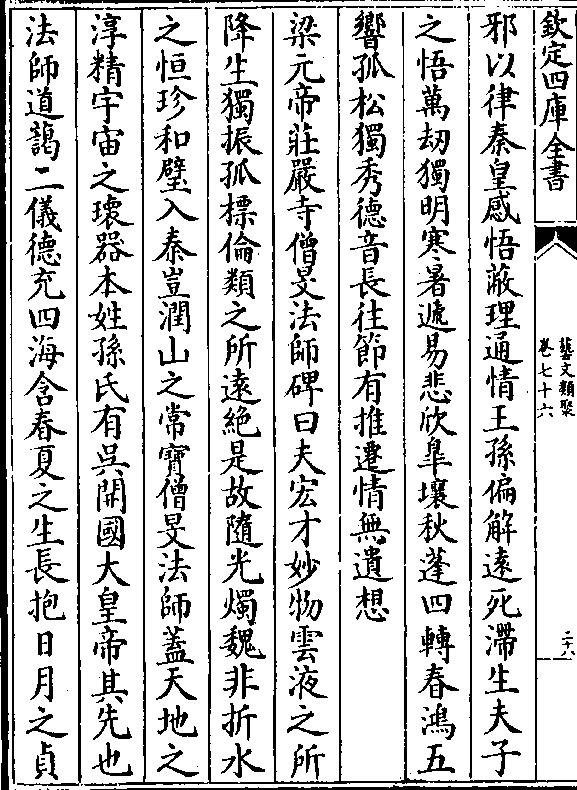 欽定四庫全書
藝文類聚
卷七十六
二十八
邪以律秦皇感悟蔽理通情王孫偏解遠死滯生夫子
之悟萬劫獨明寒暑遞易悲欣臯壤秋蓬四轉春鴻五
響孤松獨秀德音長往節有推遷情無遺想
梁元帝莊嚴寺僧旻法師碑曰夫宏才妙物雲液之所
降生獨振孤標倫類之所遠絶是故隨光燭魏非折水
之恒珍和璧入秦豈潤山之常寳僧旻法師蓋天地之
淳精宇宙之瓌器本姓孫氏有吳開國大皇帝其先也
法師道藹二儀德充四海含春夏之生長抱日月之貞